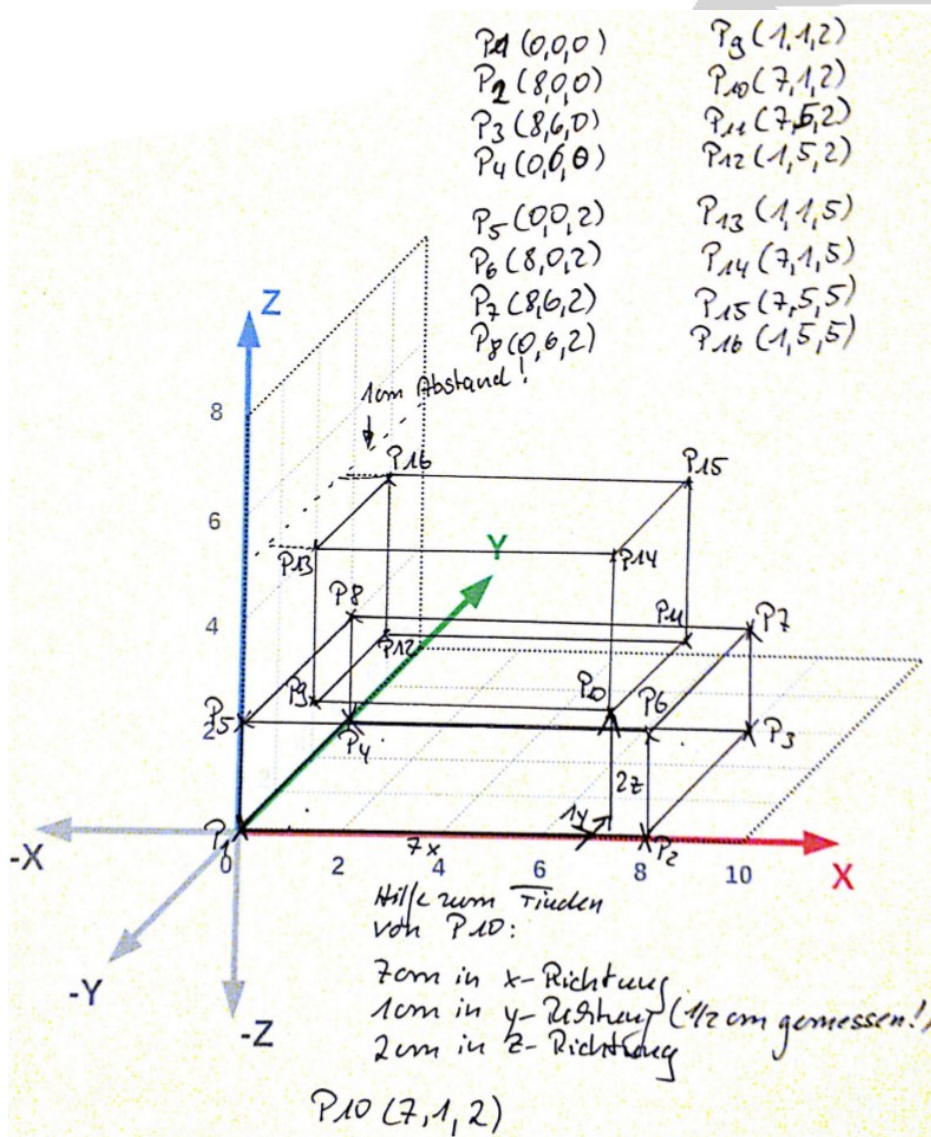 P1 (0,0,0)
P2 (8,0,0)
P3 (8,6,0)
P4 (0,6,0)
P5 (0,0,2)
P6 (8,0,2)
P7 (8,6,2)
P8 (0,6,2)
P9 (1,1,2)
P10 (7,1,2)
P11 (7,5,2)
P12 (1,5,2)
P13 (1,1,5)
P14 (7,1,5)
P15 (7,5,5)
P16 (1,5,5)
Z
1cm Abstand!
8
P16
P15
6
P13
Y
P14
P8
4
P11
P7
P12
P9
P10
P6
P5
2
P4
P3
2z
1y
-X
P1
0
2
7x
4
6
8
P2
10
X
Hilfe zum Finden
von P10:
-Y
7cm in x-Richtung
1cm in y-Richtung (1/2 cm gemessen!)
2cm in z-Richtung
-Z
P10 (7,1,2)